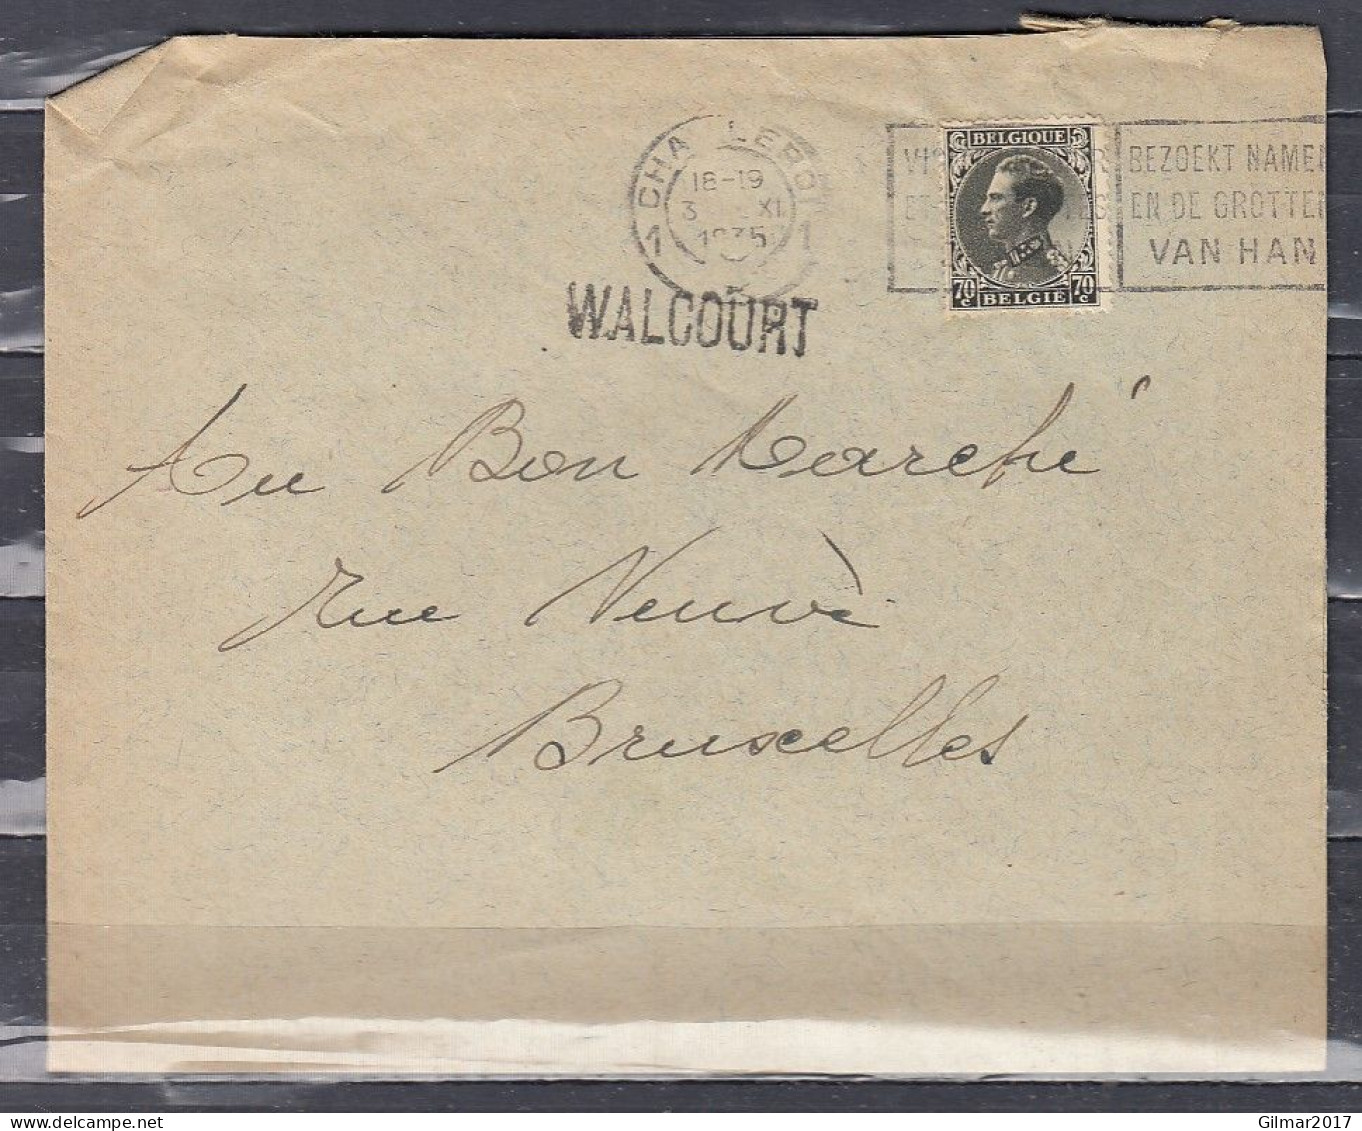 1 CHA LEROI 1
18-19
3 XI
1935
BELGIQUE
70c BELGIE 70c
BEZOEKT NAMEN
EN DE GROTTEN
VAN HAN
WALCOURT
Au Bon Marché"
rue Neuvè
Bruxelles
Gilmar2017